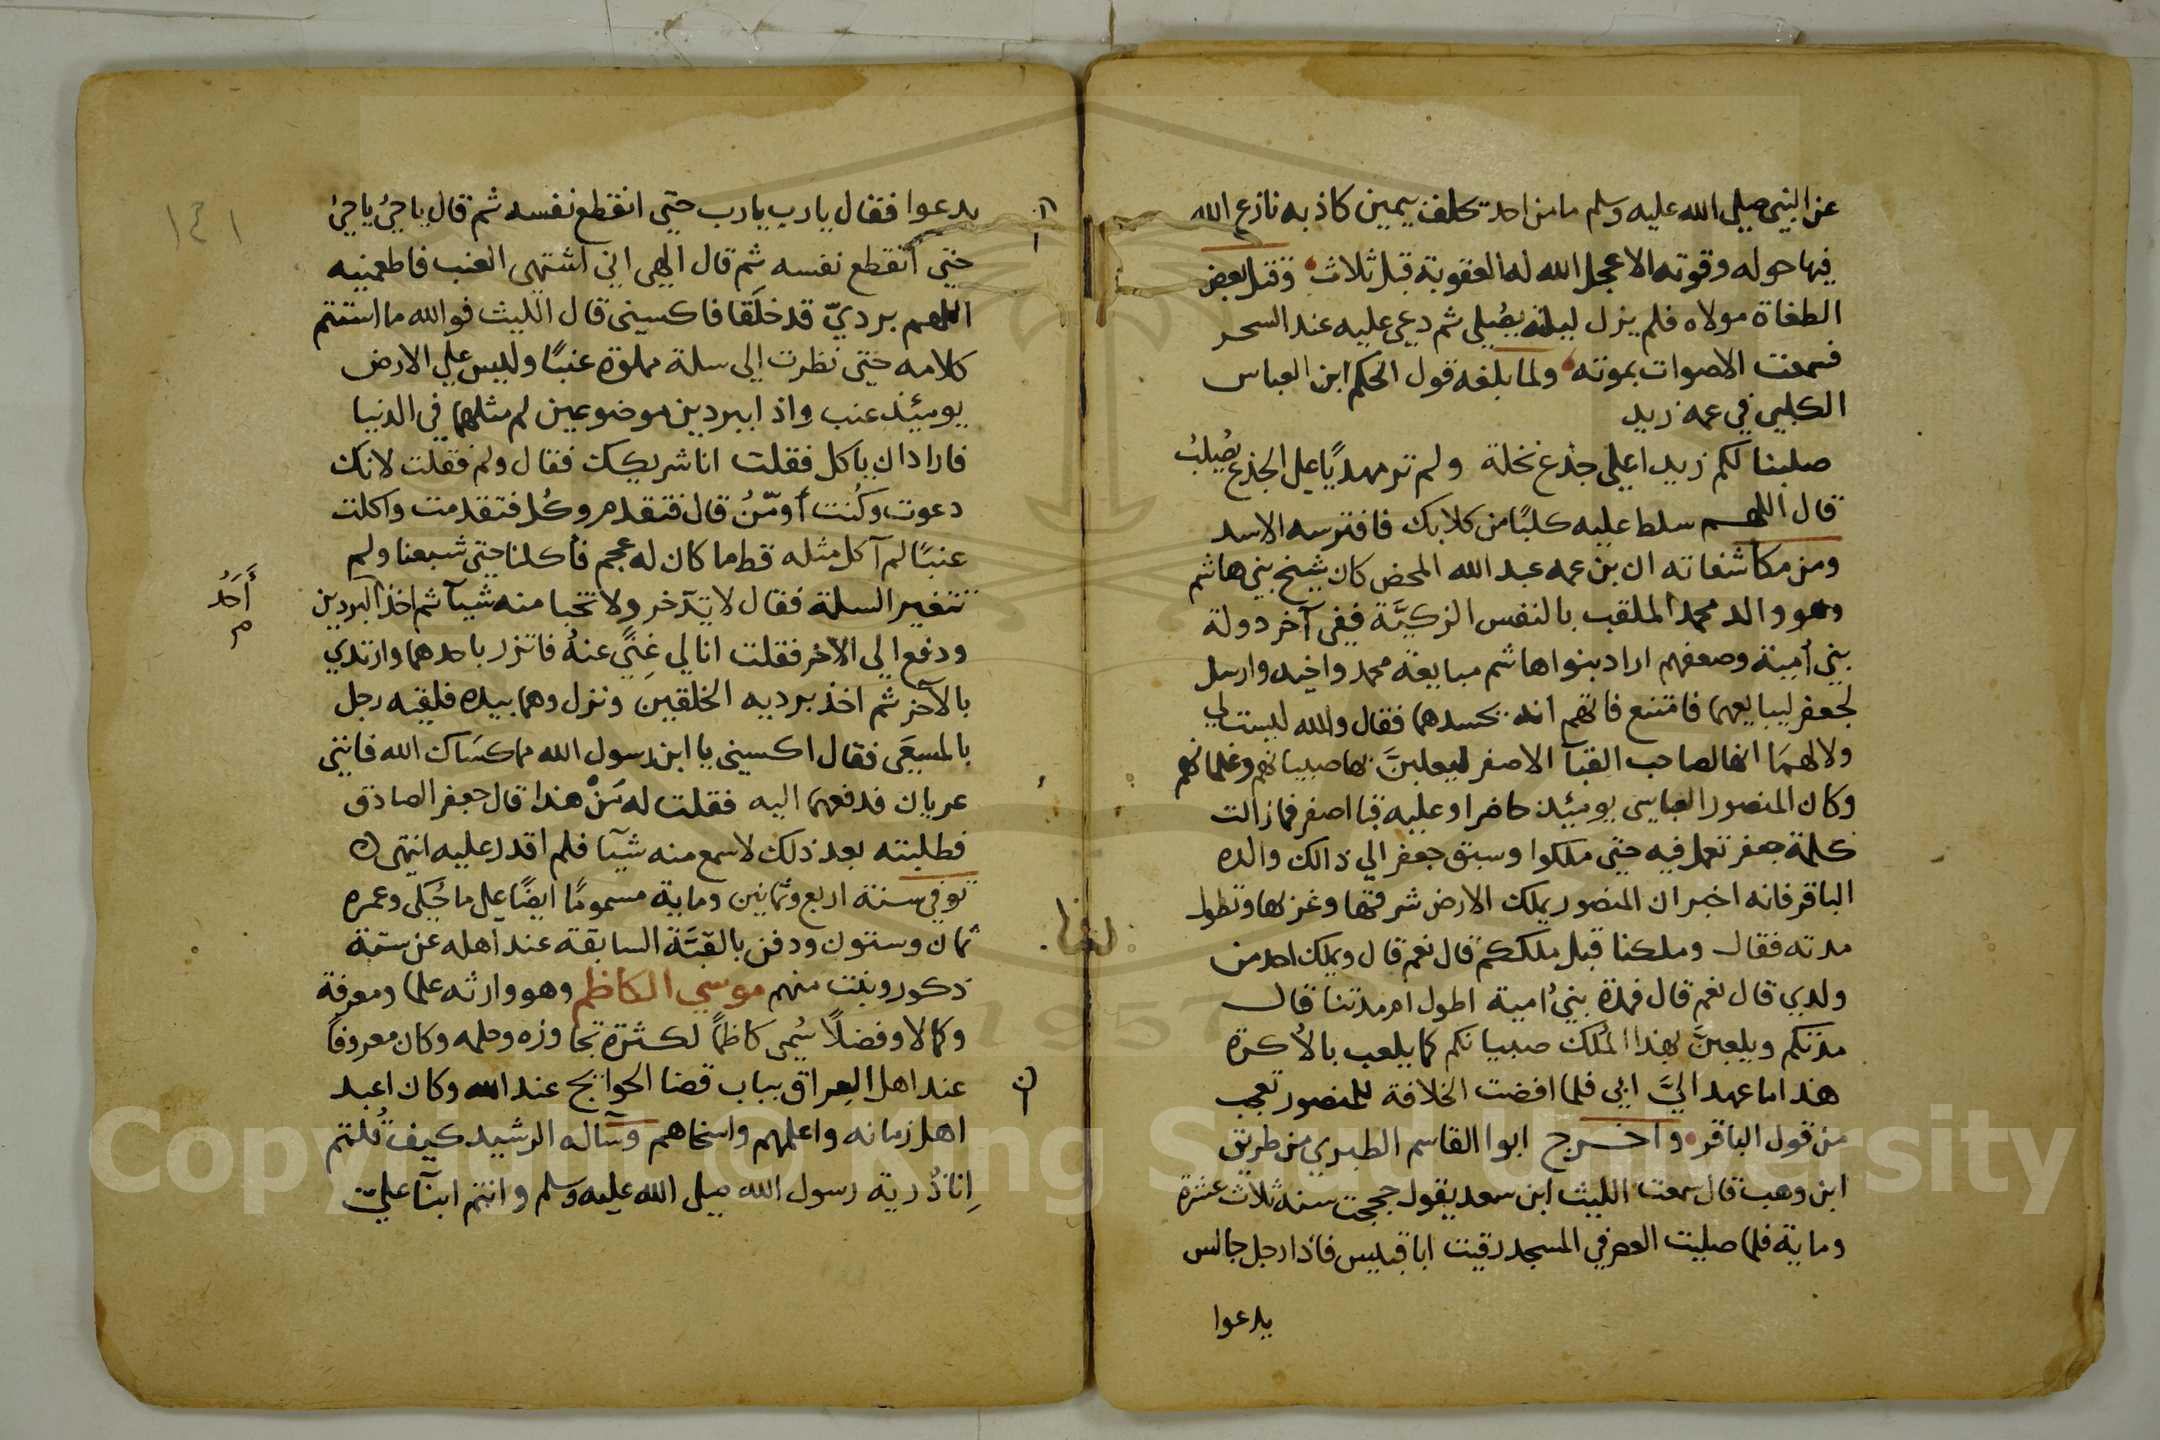 عن النبي صلى الله عليه وسلم ما من احد تحلف بيمين كاذبه نازع الله
فيها حوله وقوته الا عجل الله له العقوبة قبل ثلاث وقتل بعض
الطغاة مولاه فلم يزل ليلته يصلي ثم دعى عليه عند السحر
فسمعت الاصوات بموته ولما بلغه قول الحكم ابن العباس
الكلبي في عمه زيد
صلبنا لكم زيدا على جذع نخلة ولم تر مهديًا على الجذع يُصلبُ
قال اللهم سلط عليه كلبًا من كلابك فافترسه الاسد
ومن مكاشفاته ان بن عمه عبد الله المحض كان شيخ بني هاشم
وهو والد محمد الملقب بالنفس الزكيَّة ففي آخر دولة
بني اُمية وضعفهم اراد بنوا هاشم مبايعة محمد واخيه وارسل
لجعفر ليبايعهما فامتنع فاتهم انه يحسدهما فقال والله ليست لي
ولا لهمَا انها لصاحب القبآ الاصفر ليعلبنَّ بها صبيانهم وغلمانهم
وكان المنصور العباسي يوميئذ حاضرا وعليه قبا اصفر فمازالت
كلمة جعفر تعمل فيه حتى ملكوا وسبق جعفر الى ذالك والده
الباقر فانه اخبر ان المنصور يملك الارض شرقها وغربها وتطول
مدته فقال وملكنا قبل ملككم قال نعم قال ويملك احد من
ولدي قال نعم قال فمدة بني اُمية اطول ام مدتنا قال
مدتكم ويلعبنَّ بهذا المُلك صبيانكم كما يلعب بالاُكرة
هذا ما عهد اليَّ ابي فلما افضت الخلافة للمنصور تعجب
من قول الباقر واخرج ابوا القاسم الطبري من طريق
ابن وهب قال سمعت الليث ابن سعد يقول حججت سنه ثلاث عشرة
وماية فلما صليت العصر في المسجد رقيت ابا قبيس فاذا رجل جالس
يدعوا
يدعوا فقال يا رب يا رب حتى انقطع نفسه ثم قال يا حيُ يا حيُ
حتى انقطع نفسه ثم قال الهي اني اشتهي العنب فاطعمنيه
اللهم برديّ قد خلَقا فاكسيني قال الليث فوالله ما استتم
كلامه حتى نظرت الى سلة مملوّة عنبًا وليس على الارض
يوميئذ عنب واذا ببردين موضوعين لم مثلهما في الدنيا
فاراد ان ياكل فقلت انا شريكك فقال ولم فقلت لانك
دعوت وكُنت أومّنُ قال فتقدم وكُل فتقدمت واكلت
عنبًا لم آكل مثله قط ما كان له عجم فأكلنا حتى شبعنا ولم
تتغير السلة فقال لا تدّخر ولا تخبا منه شيآ ثم اخذ البردين
أَحَدُ
م
ودفع الي الآخر فقلت انا لي غِنًي عنهُ فاتزر باحدهما وارتدي
بالآخر ثم اخذ برديه الخلقين ونزل وهما بيده فلقيه رجل
بالمسعَى فقال اكسيني يا ابن رسول الله مما كسَاك الله فانني
عريان فدفعهما اليه فقلت له مَنْ هذا قال جعفر الصادق
فطلبته بعد ذلك لاسمع منه شيآ فلم اقدر عليه انتهى
توفي سنة اربع وثمانين وماية مسمومًا ايضًا على ما حُكى وعمره
ثمان وستون ودفن بالقبَّة السابقة عند اهله عن ستة
ذكور وبنت منهم موسي الكاظم وهو وارثه علما ومعرفة
وكمالا وفضلًا سُمى كاظمًا لكثرة تجاوزه وحلمه وكان معروفًا
عند اهل العراق بباب قضا الحوايج عند الله وكان اعبد
اهل زمانه واعلمهم واسخاهم وسآله الرشيد كيف قُلتم
اِنا ذُرية رسول الله صلى الله عليه وسلم وانتم ابنآ علي
١٤١
Copyright © King Saud University
1957